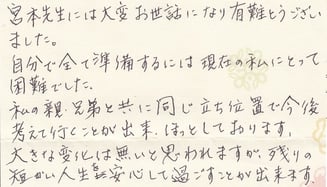 宮本先生には大変お世話になり有難とうござい
ました。
自分で全て準備するには現在の私にとって
困難でした。
私の親、兄弟と共に同じ立ち位置で今後
考えて行くことが出来、ほっとしております。
大きな変化は無いと思われますが、残りの
短かい人生安心して過ごすことが出来ます。